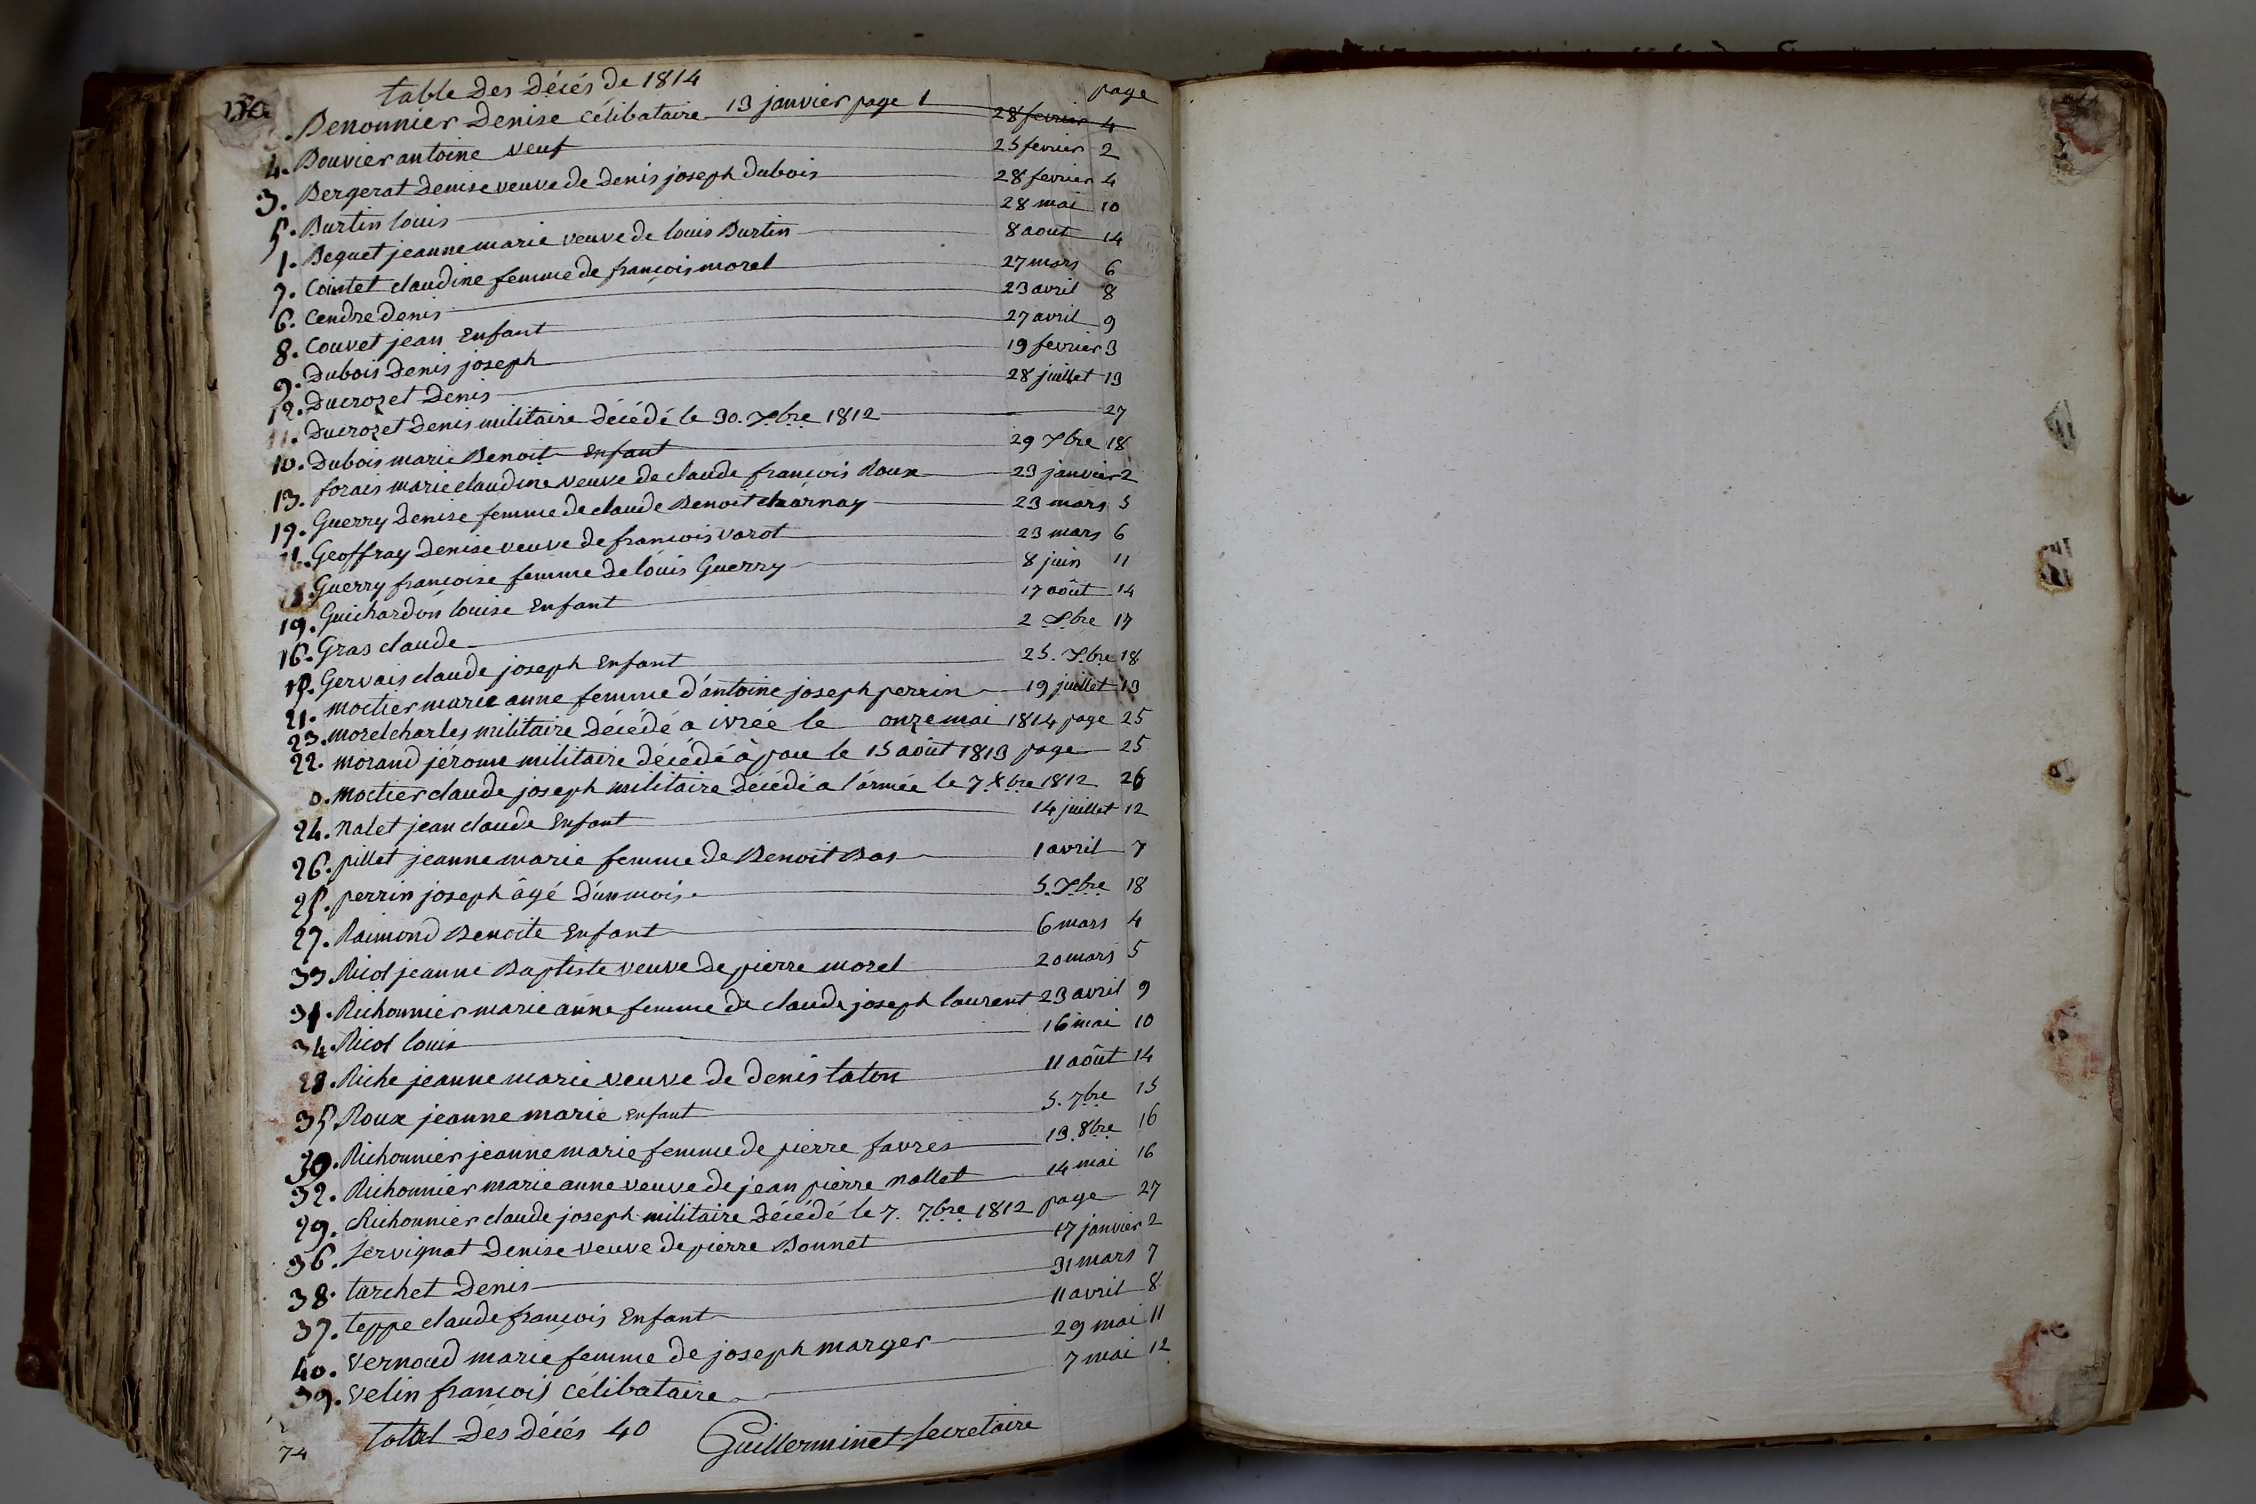 table des décés de 1814
page
Benonnier Denise Célibataire 13 janvier page 1 28 fevrier 4
4. Bouvier antoine veuf 25 fevrier 2
3. Bergerat Denise veuve de Denis joseph Dubois 28 fevrier 4
5. Burtin louis 28 mai 10
1. Beguet jeanne marie veuve de louis Burtin 8 aout 14
7. Cointet claudine femme de françois morel 27 mars 6
6. Cendre denis 23 avril 8
8. Couvet jean Enfant 27 avril 9
9. Dubois Denis joseph 19 fevrier 3
12. Ducrozet Denis 28 juillet 13
11. Ducrozet Denis militaire décédé le 30. Xbre 1812 27
10. Dubois marie Benoit Enfant 29 Xbre 18
13. forais marie claudine veuve de claude françois Roux 23 janvier 2
19. Guerry Denise femme de claude Benoit charnay 23 mars 5
Geoffray Denise veuve de francois varot 23 mars 6
Guerry françoise femme de louis Guerry 8 juin 11
19. Guichardon louise Enfant 17 août 14
16. Gras claude 2 Xbre 17
Gervais claude joseph Enfant 25. Xbre 18
21. moctier marie anne femme d'antoine joseph perrin 19 juillet 13
23. morel charles militaire décédé a ivrée le onze mai 1814 page 25
22. morand jérome militaire décédé à pau le 15 août 1813 page 25
0. moctier claude joseph militaire décédé a l'armée le 7 Xbre 1812 26
24. nalet jean claude Enfant 14 juillet 12
26. pillet jeanne marie femme de Benoit Bas 1 avril 7
25. perrin joseph âgé d'un mois 5. Xbre 18
27. Raimond Benoite Enfant 6 mars 4
33 Ricol jeanne Baptiste veuve de pierre morel 20 mars 5
31. Richonnier marie anne femme de claude joseph laurent 23 avril 9
34. Ricol louis 16 mai 10
28. Riche jeanne marie veuve de denis taton 11 août 14
35 Roux jeanne marie Enfant 5. 7bre 15
30. Richonnier jeanne marie femme de pierre favres 13. 8bre 16
32. Richonnier marie anne veuve de jean pierre nallet 14 mai 16
29. Richonnier claude joseph militaire décédé le 7. 7bre 1812 page 27
36. servignat Denise veuve de pierre Bonnet 17 janvier 2
38. turchet Denis 31 mars 7
37. teppe claude françois Enfant 11 avril 8
40. vernoud marie femme de joseph marger 29 mai 11
39. velin françois célibataire 7 mai 12
total des décés 40 Guillerminet secretaire
74